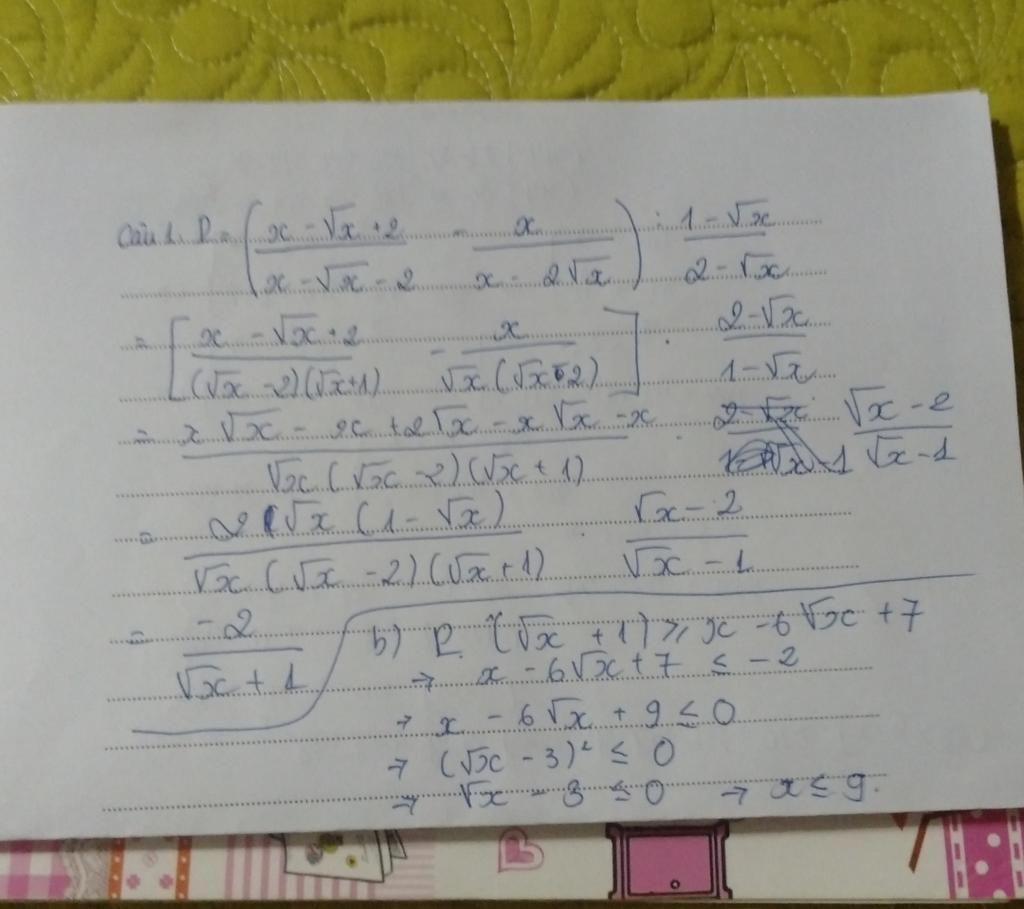 Câu 1. P = ( (x - √x + 2)/(x - √x - 2) - x/(x - 2√x) ) : (1 - √x)/(2 - √x)
= [ (x - √x + 2)/((√x - 2)(√x + 1)) - x/(√x(√x - 2)) ] . (2 - √x)/(1 - √x)
= (x√x - x + 2√x - x√x - x)/(√x(√x - 2)(√x + 1)) . (√x - 2)/(√x - 1)
= 2√x(1 - √x)/(√x(√x - 2)(√x + 1)) . (√x - 2)/(√x - 1)
= -2/(√x + 1)
b) P. (√x + 1) ≥ x - 6√x + 7
→ x - 6√x + 7 ≤ -2
→ x - 6√x + 9 ≤ 0
→ (√x - 3)² ≤ 0
→ √x - 3 ≤ 0 → x ≤ 9.